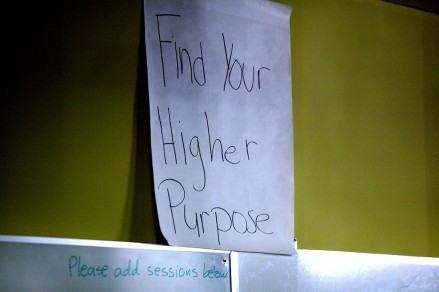 Find Your
Higher
Purpose
Please add sessions below